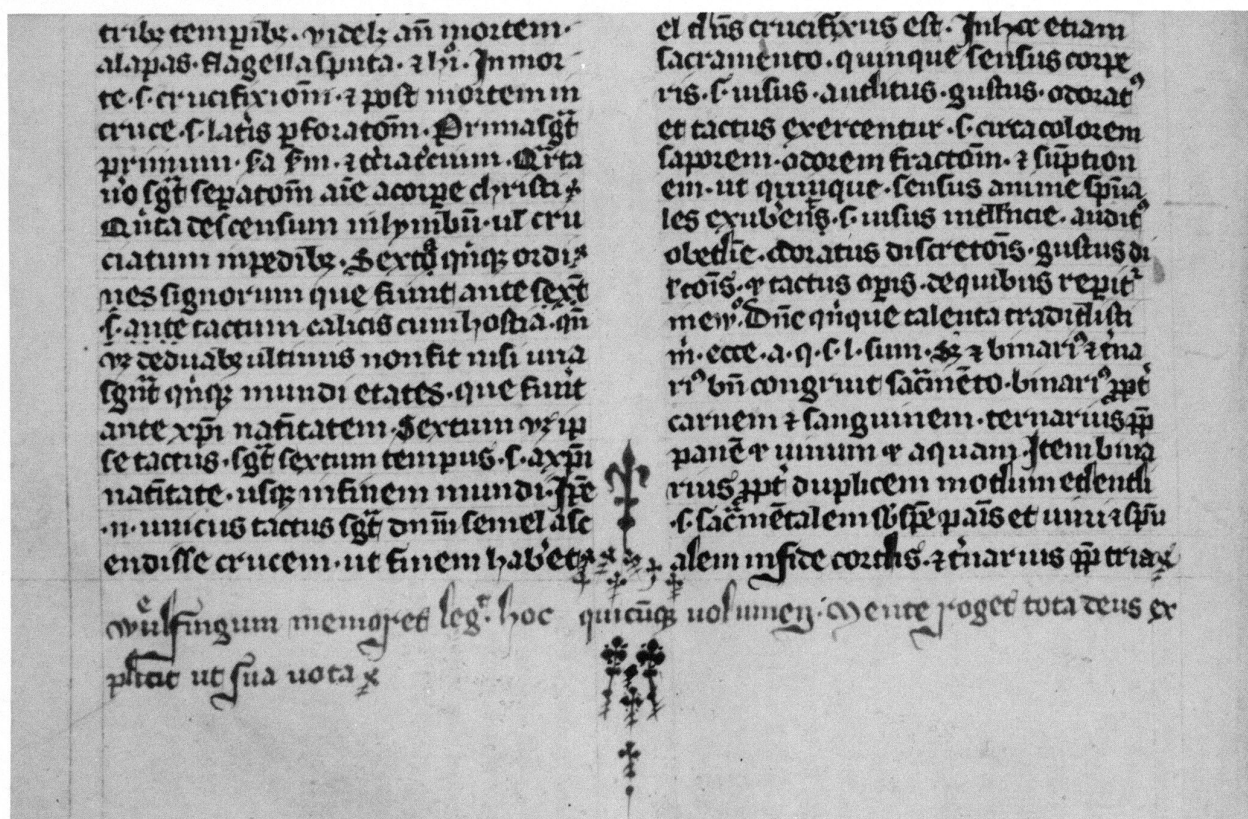 tribꝫ tempibꝫ. videlꝫ añ mortem.
alapas. flagella sputa. ⁊ hꝰi. In mor
te .s. crucifixiom̄. ⁊ post mortem in
cruce .s. lat̄is pforatom̄. Prima sḡt
primum. ⁊ t̄ria t̄cium. Qr̄ta
u̓o sḡt sepatom̄ aīe a corpe christi
Qn̄ta descensum in lymbū. ul̄ cru
ciatum in pedibꝫ. Sexto qn̄qꝫ ordi
nes signorum que fiunt ante sext̄
.s. ante tactum calicis cum hostia. qn̄
de duabꝫ ultimis non fit nisi una
sgn̄t qn̄qꝫ mundi etates. que fiūt
ante xp̄i natītatem. Sextum ip
se tactus. sḡt sextum tempus .s. a xp̄i
natītate. usqꝫ in finem mundi. Ip̄e
.n. unicus tactus sḡt dnm̄ semel asc
endisse crucem. ut finem hab̓et
el dn̄s crucifixus est. In hoc etiam
sacramento. quinque sensus corpo
ris .s. uisus. auditus. gustus. odoratꝰ
et tactus exercentur .s. circa colorem
saporem. odorem fractom̄. ⁊ sūption
em. ut quinque. sensus anime spūa
les exub̓en̄s .s. uisus intll̄incie. auditꝰ
obedīe. odoratus discretōis. gustus di
lectōis. ⁊ tactus opis. de quibus repit̄
Dn̄e qn̄que talenta tradidisti
m̄. ecce. a. q. s. l. sum. Sꝫ ⁊ binariꝰ ⁊ t̓na
riꝰ bn̄ congruit sac̄mēto. binariꝰ ꝓpt̄
carnem ⁊ sanguinem. ternarius ꝓp̄
panē ⁊ uinum ⁊ aquam. Item bina
rius ꝓpt̄ duplicem modum edendi
.s. sac̄mētalem sb̄ spē pāis et uini ⁊ spū
alem in fide cordis. ⁊ t̓narius ꝓp̄ tria
wͤulfingum memoret leḡt. hoc quicūqꝫ uolumen. Mente roget tota deus ex
pleat ut sua uota